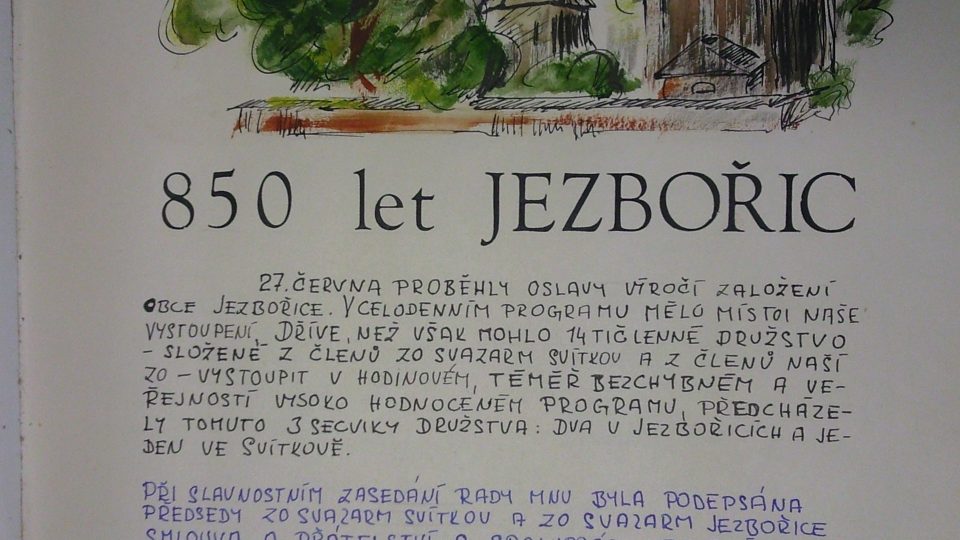 850 let JEZBOŘIC
27. ČERVNA PROBĚHLY OSLAVY VÝROČÍ ZALOŽENÍ
OBCE JEZBOŘICE. V CELODENNÍM PROGRAMU MĚLO MÍSTO I NAŠE
VYSTOUPENÍ. DŘÍVE, NEŽ VŠAK MOHLO 14TIČLENNÉ DRUŽSTVO
– SLOŽENÉ Z ČLENŮ ZO SVAZARM SVÍTKOV A Z ČLENŮ NAŠÍ
ZO – VYSTOUPIT V HODINOVÉM, TÉMĚŘ BEZCHYBNÉM A VE–
ŘEJNOSTÍ VYSOKO HODNOCENÉM PROGRAMU, PŘEDCHÁZE–
LY TOMUTO 3 SECVIKY DRUŽSTVA: DVA V JEZBOŘICÍCH A JE–
DEN VE SVÍTKOVĚ.
PŘI SLAVNOSTNÍM ZASEDÁNÍ RADY MNV BYLA PODEPSÁNA
PŘEDSEDY ZO SVAZARM SVÍTKOV A ZO SVAZARM JEZBOŘICE
SMLOUVA O PŘÁTELSTVÍ A